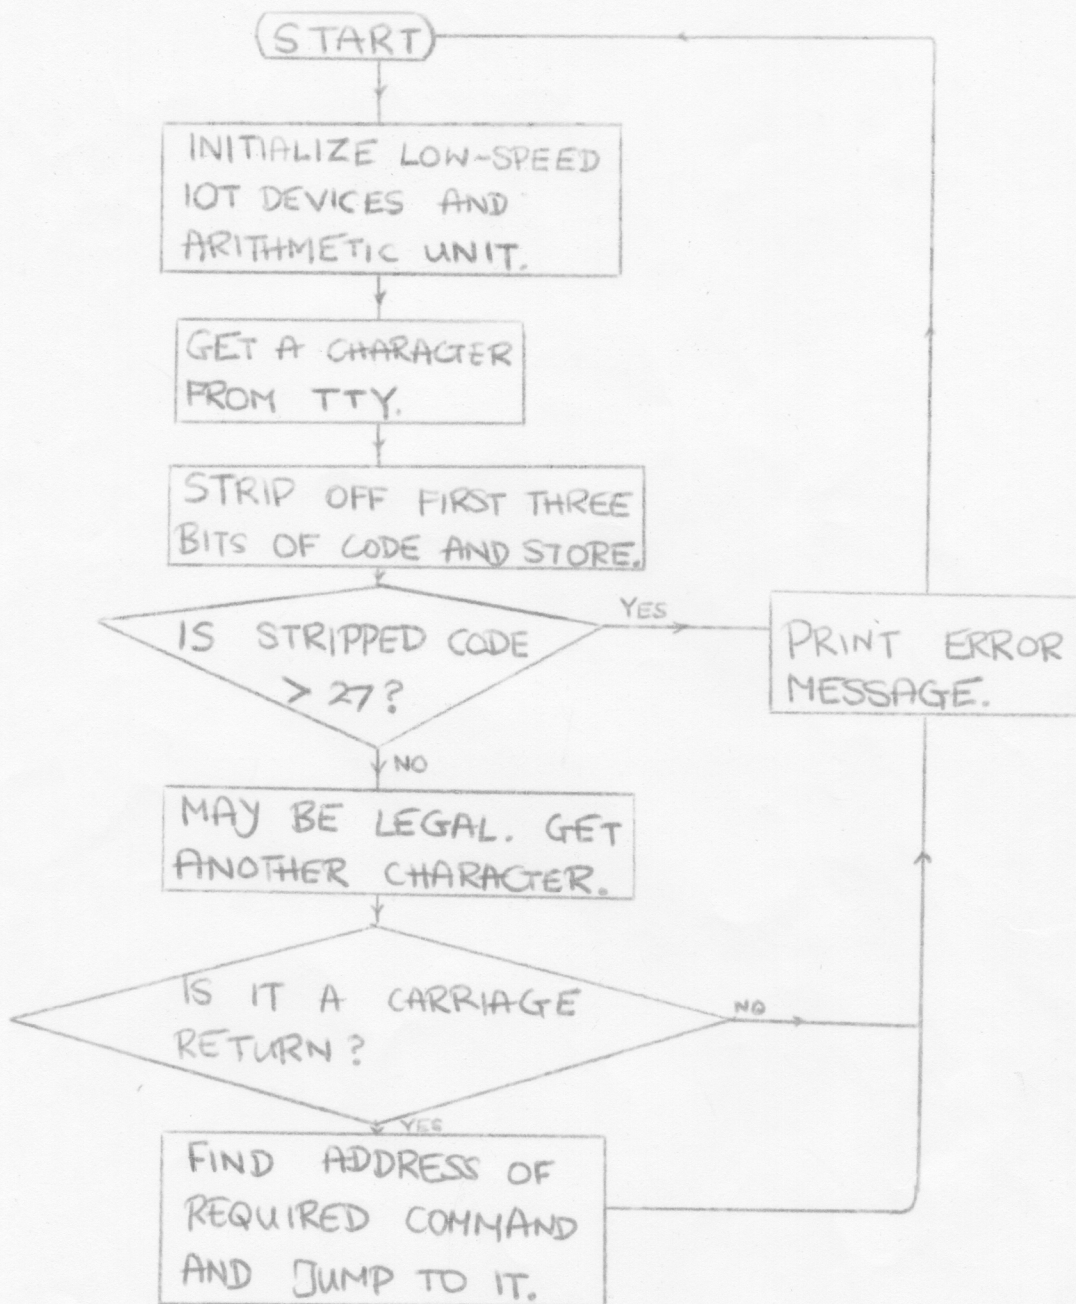 START
INITIALIZE LOW-SPEED
IOT DEVICES AND
ARITHMETIC UNIT.
GET A CHARACTER
FROM TTY.
STRIP OFF FIRST THREE
BITS OF CODE AND STORE.
IS STRIPPED CODE
> 27?
YES
PRINT ERROR
MESSAGE.
NO
MAY BE LEGAL. GET
ANOTHER CHARACTER.
IS IT A CARRIAGE
RETURN?
NO
YES
FIND ADDRESS OF
REQUIRED COMMAND
AND JUMP TO IT.